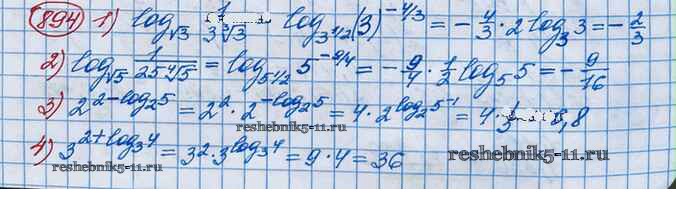 894 1) log_√3 1/(3∛3) log_3^1/2 (3)^-4/3 = -4/3 · 2 log_3 3 = -2/3
2) log_√5 1/(25 ∜5) = log_5^1/2 5^-9/4 = -9/4 · 1/2 log_5 5 = -9/16
3) 2^(2-log_2 5) = 2^2 · 2^(-log_2 5) = 4 · 2^(log_2 5^-1) = 4 · 1/ 8,8
reshebnik5-11.ru
4) 3^(2+log_3 4) = 3^2 · 3^(log_3 4) = 9 · 4 = 36
reshebnik5-11.ru
reshebnik5-11.ru